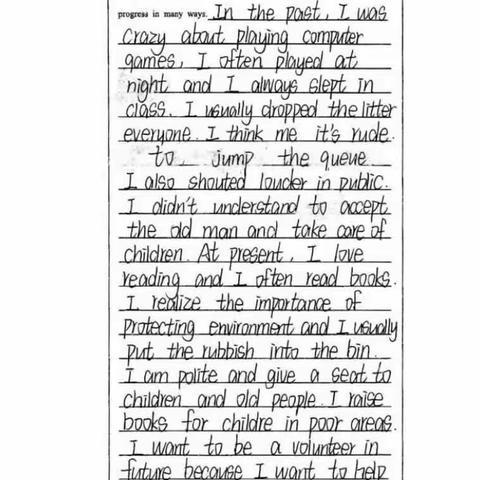 progress in many ways. In the past, I was
crazy about playing computer
games, I often played at
night and I always slept in
class. I usually dropped the litter
everyone. I think me it's rude.
to jump the queue
I also shouted louder in public.
I didn't understand to accept
the old man and take care of
children. At present, I love
reading and I often read books.
I realize the importance of
protecting environment and I usually
put the rubbish into the bin.
I am polite and give a seat to
children and old people. I raise
books for childre in poor areas.
I want to be a volunteer in
future because I want to help